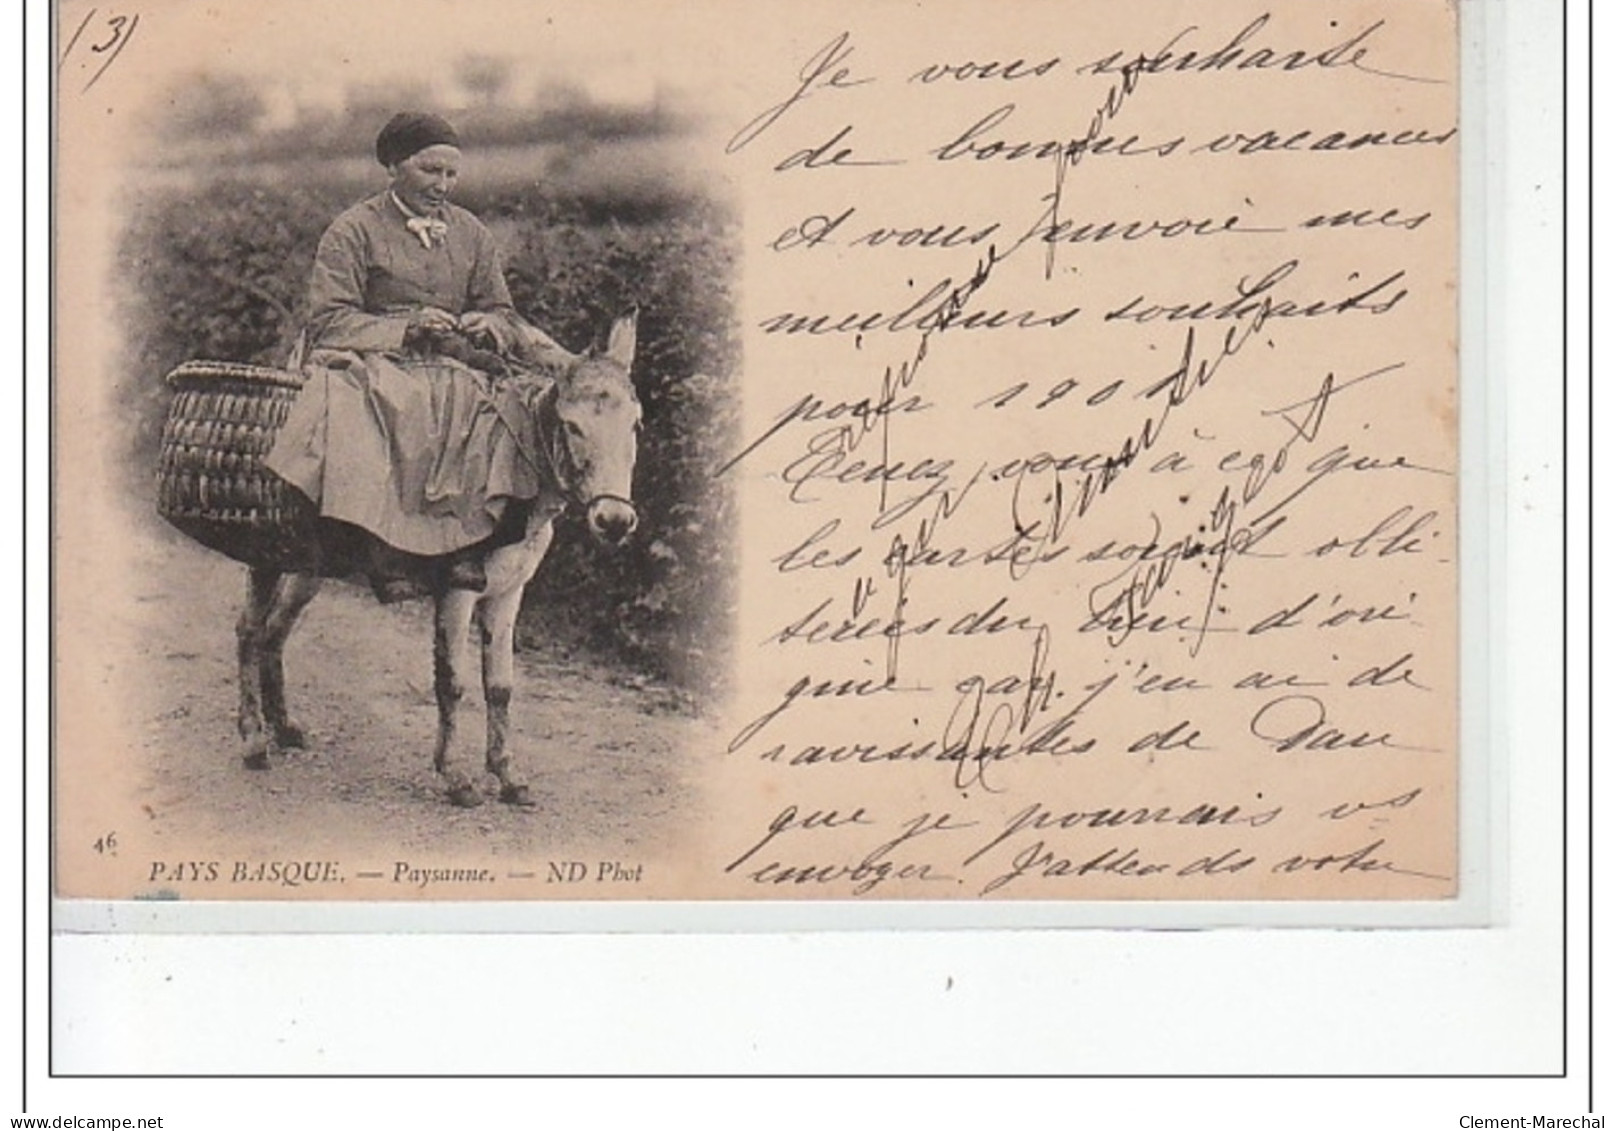 (3)
Je vous souhaite
de bonnes vacances
et vous envoie mes
meilleurs souhaits
pour 1901
Tenez vous à ego que
les cartes soient obli-
térées du lieu d'ori-
gine car j'en ai de
ravissantes de Dau
que je pourrais vs
envoyer. J'attends votre
réponse pour
Ch. Sarigot
46
PAYS BASQUE. — Paysanne. — ND Phot
Clement-Marechal